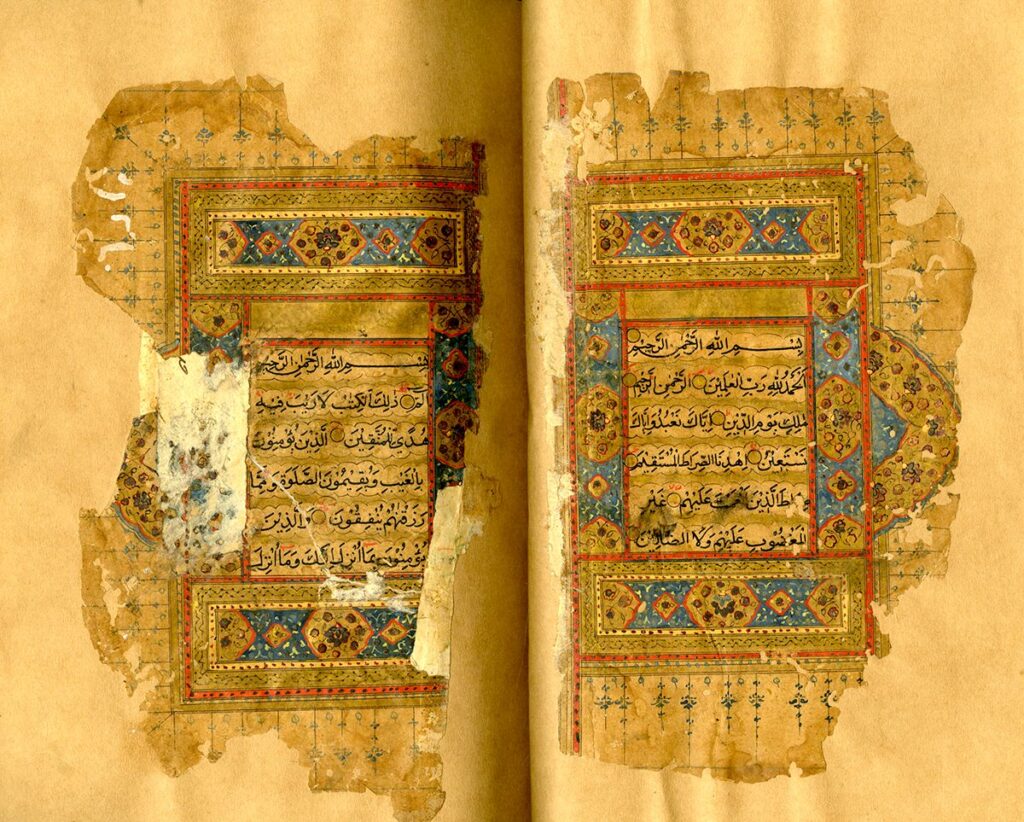 بِسْمِ اللهِ الرَّحْمٰنِ الرَّحِيْمِ
اَلْحَمْدُ لِلّٰهِ رَبِّ الْعٰلَمِيْنَ الرَّحْمٰنِ الرَّحِيْمِ
مٰلِكِ يَوْمِ الدِّيْنِ اِيَّاكَ نَعْبُدُ وَاِيَّاكَ
نَسْتَعِيْنُ اِهْدِنَا الصِّرَاطَ الْمُسْتَقِيْمَ
الَّذِيْنَ اَنْعَمْتَ عَلَيْهِمْ غَيْرِ
الْمَغْضُوْبِ عَلَيْهِمْ وَلَا الضَّالِّيْنَ
بِسْمِ اللهِ الرَّحْمٰنِ الرَّحِيْمِ
الٓمّٓ ذٰلِكَ الْكِتٰبُ لَا رَيْبَ فِيْهِ
هُدًى لِلْمُتَّقِيْنَ الَّذِيْنَ يُؤْمِنُوْنَ
بِالْغَيْبِ وَيُقِيْمُوْنَ الصَّلٰوةَ وَمِمَّا
رَزَقْنٰهُمْ يُنْفِقُوْنَ وَالَّذِيْنَ
يُؤْمِنُوْنَ بِمَا اُنْزِلَ اِلَيْكَ وَمَا اُنْزِلَ